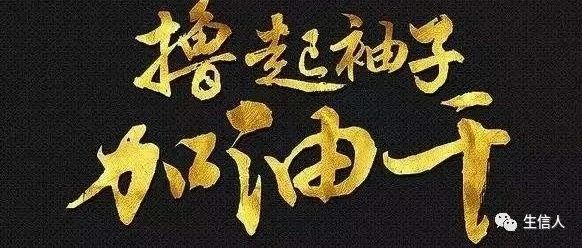 撸起袖子
加油干
生信人